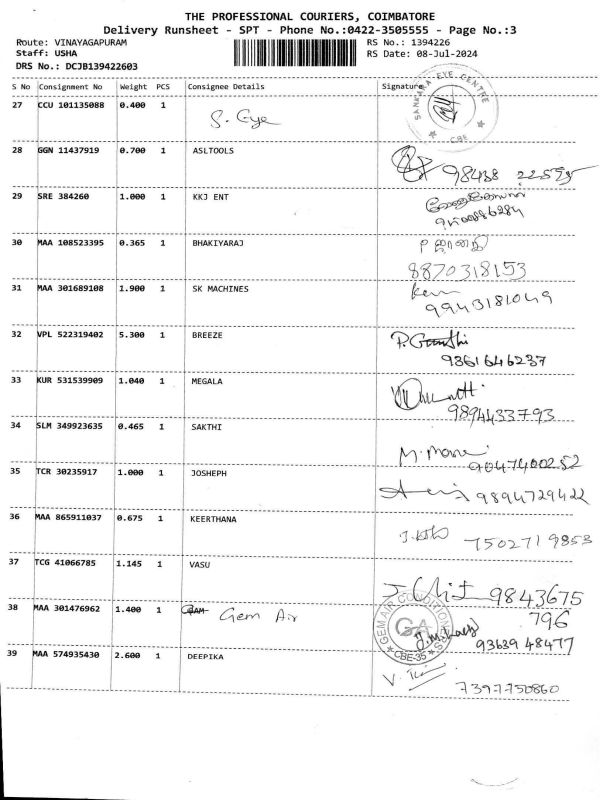 THE PROFESSIONAL COURIERS, COIMBATORE
Delivery Runsheet - SPT - Phone No.:0422-3505555 - Page No.:3
Route: VINAYAGAPURAM RS No.: 1394226
Staff: USHA RS Date: 08-Jul-2024
DRS No.: DCJB139422603
S No Consignment No Weight PCS Consignee Details Signature
SANKARA EYE CENTRE
CBE
27 CCU 101135088 0.400 1 S. Eye
28 GGN 11437919 0.700 1 ASLTOOLS
98438 22555
29 SRE 384260 1.000 1 KKJ ENT
30 MAA 108523395 0.365 1 BHAKIYARAJ
8870318153
31 MAA 301689108 1.900 1 SK MACHINES
9943181049
32 VPL 522319402 5.300 1 BREEZE P. Gandhi
9861646237
33 KUR 531539909 1.040 1 MEGALA
9894433793
34 SLM 349923635 0.465 1 SAKTHI
9047400252
35 TCR 30235917 1.000 1 JOSHEPH
9894729422
36 MAA 865911037 0.675 1 KEERTHANA
7502719853
37 TCG 41066785 1.145 1 VASU
9843675
796
38 MAA 301476962 1.400 1 Gem Air
GEM AIR CONDITION
GA
CBE-35
93639 48477
39 MAA 574935430 2.600 1 DEEPIKA
7397750860